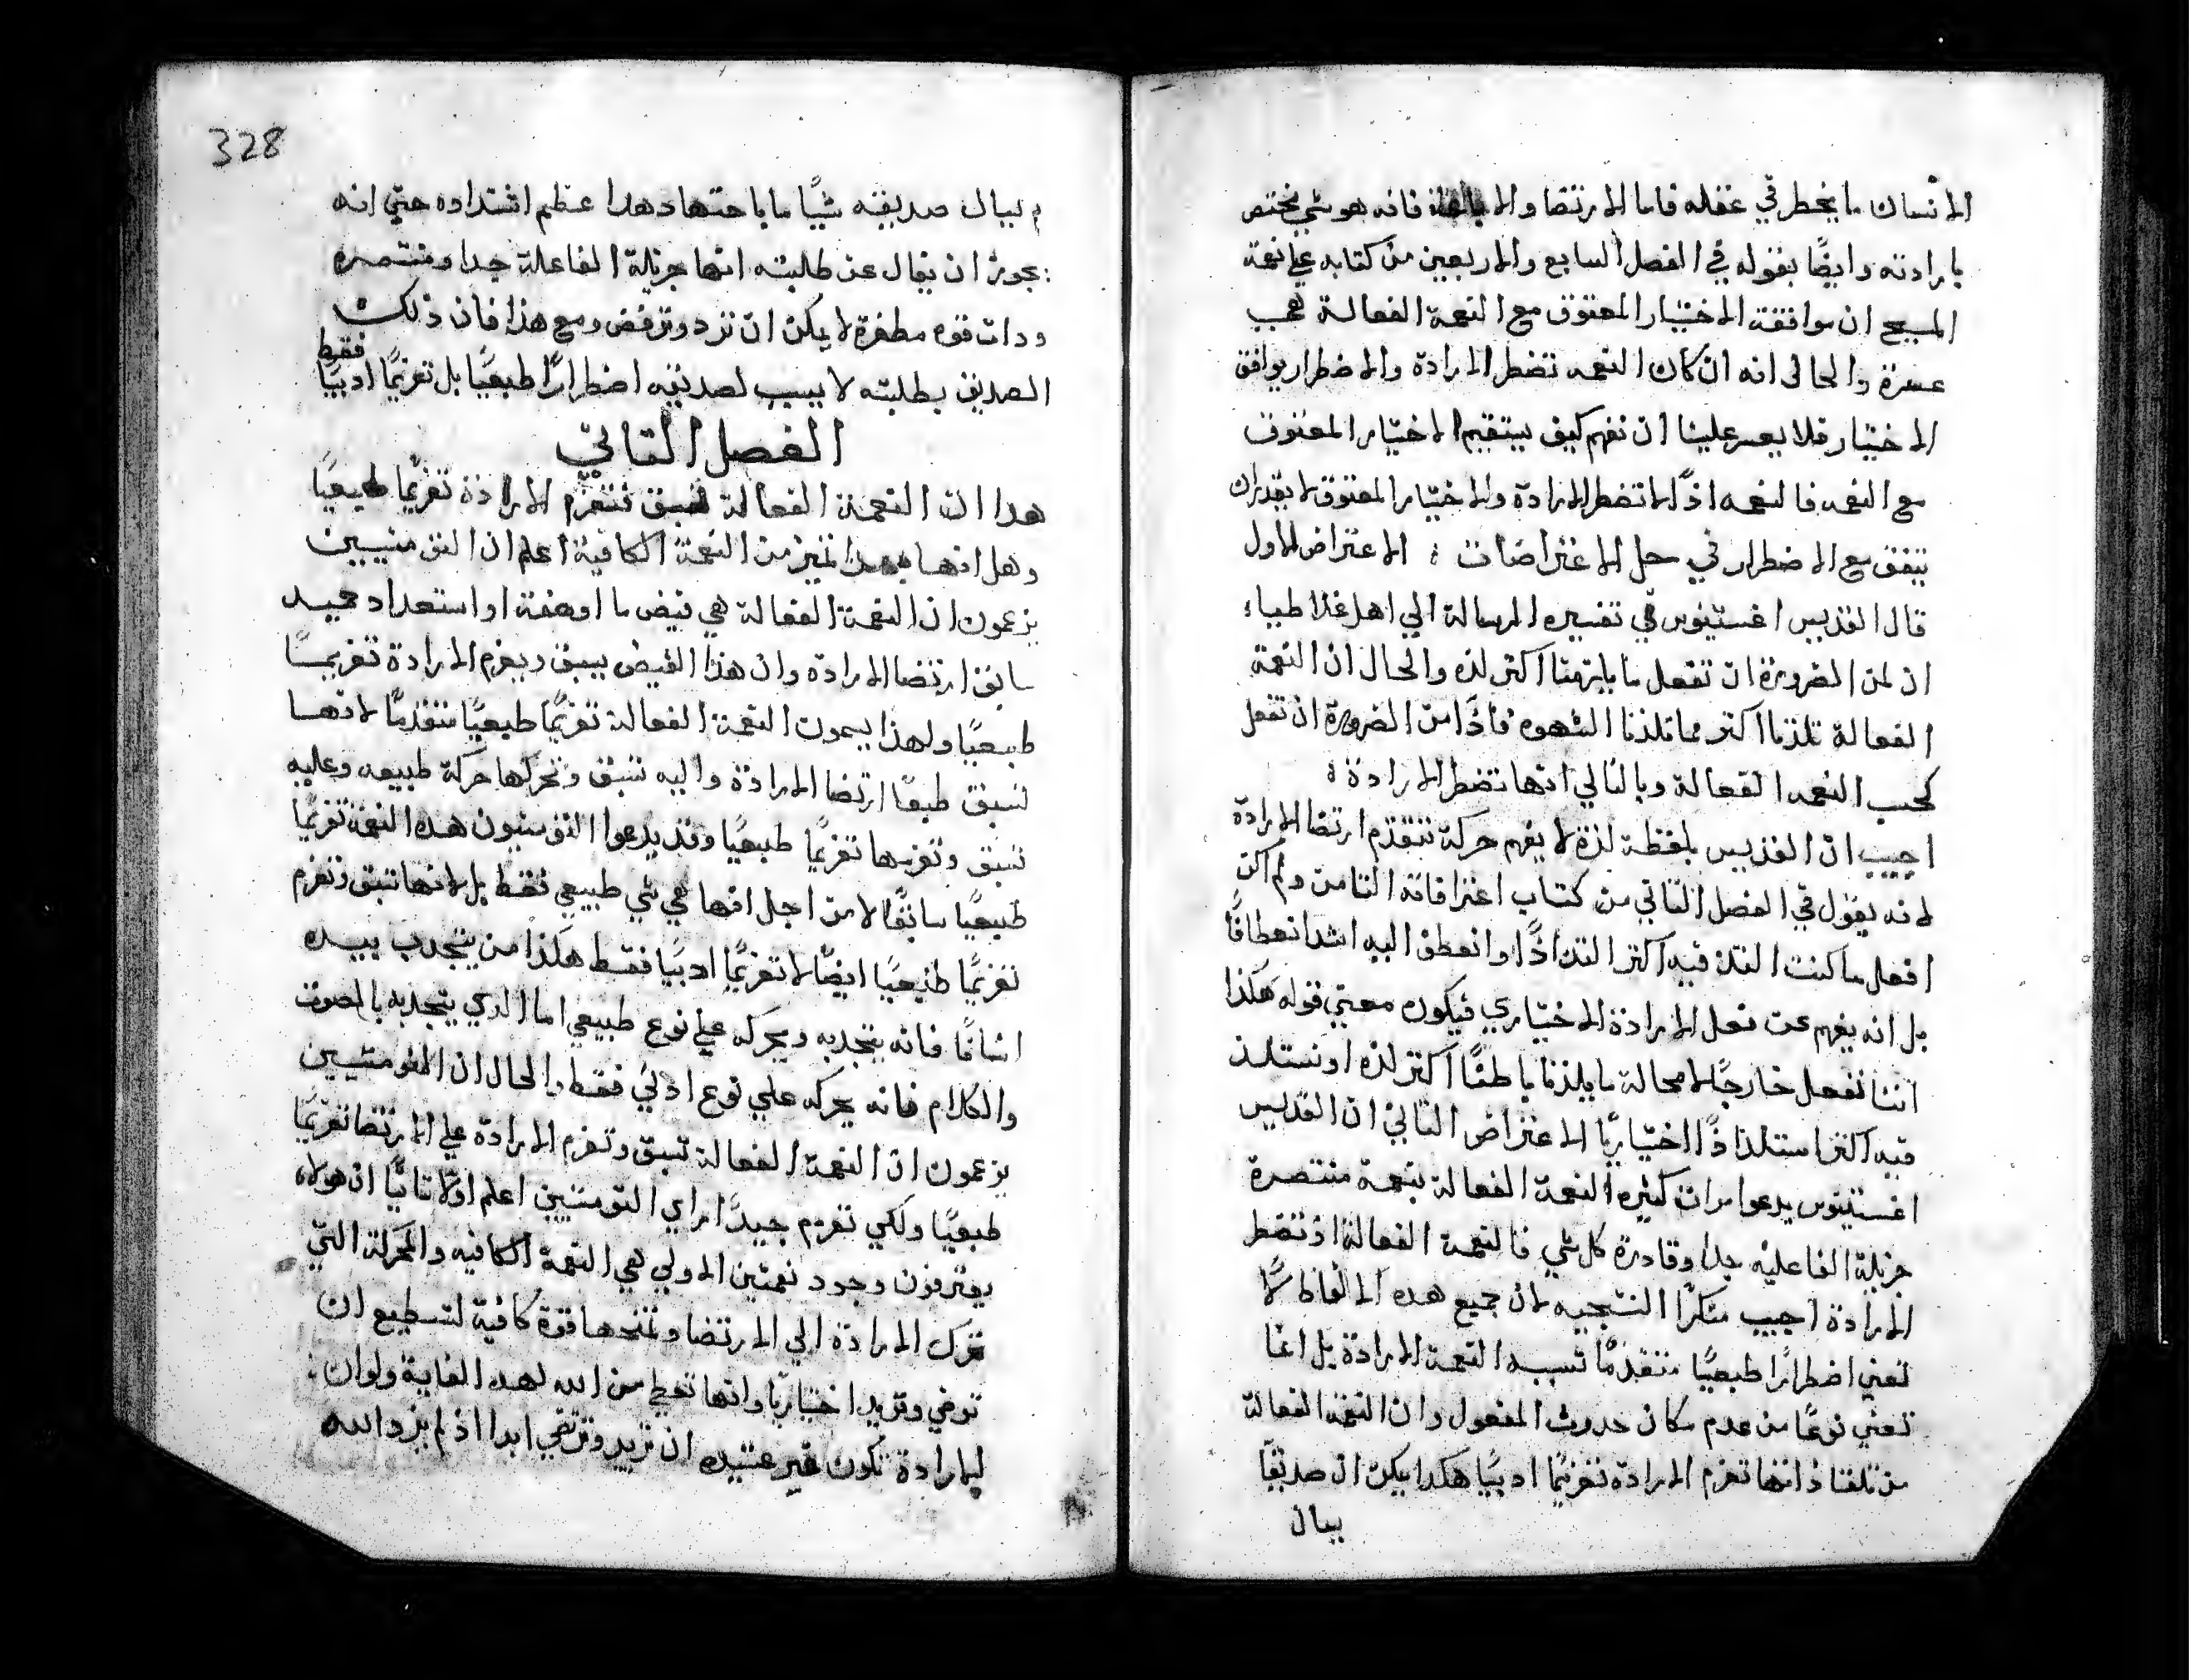 الانسان ما يخطر في عقله فاما الارتضا والا فانه هو شي يختص
بارادته وايضًا بقوله في الفصل السابع والاربعين من كتابه علي نعمة
المسيح ان موافقة الاختيار المعتوق مع النعمة الفعالة هي
عسرة والحال انه ان كان النعمه تضطر الارادة والاضطرار يوافق
الاختيار فلا يعسر علينا ان نفهم كيف يستقيم الاختيار المعتوق
مع النعمه فالنعمه اذًا لا تضطر الارادة والاختيار المعتوق لا يقدر ان
يتفق مع الاضطرار في حل الاعتراضات ؛ الاعتراض الاول
قال القديس اغستينوس في تفسيره الرسالة الي اهل غلاطيا ؛
ان لمن الضرورة ان نفعل ما يلزمنا اكتر لذه والحال ان النعمة
الفعالة تلذنا اكتر مما تلذنا الشهوه فاذًا من الضرورة ان نفعل
كحسب النعمه الفعالة وبالتالي انها تضطر الارادة ؛
اجيب ان القديس بلفظة لذة لا يفهم حركة تتقدم ارتضا الارادة
لانه يقول في الفصل التاني من كتاب اعترافاته التامن ولم اكن
افعل ما كنت التذ فيه اكتر التذاذًا وانعطف اليه اشد انعطافًا
بل انه يفهم عن فعل الارادة الاختياري فيكون معني قوله هكذا
اننا نفعل خارجًا لا محالة ما يلذنا باطنًا اكتر لذه او نستلذ
فيه اكتر استلذاذًا اختياريًا الاعتراض التاني ان القديس
اغستينوس يدعوا مرات كثيره النعمة الفعالة بنعمة منتصرة
جزيلة الفاعليه جدا وقادرة كل شي فالنعمة الفعالة اذ تضطر
الارادة اجيب منكرًا النتيجيه لان جميع هده الالفاظ لا
تعني اضطرارًا طبيعيًا متقدمًا تسببه النعمة الارادة بل انما
تعني نوعًا من عدم مكان حدوث المفعول وان النعمة الفعالة
من تلقا ذاتها تعزم الارادة تعزيمًا ادبيًا هكدا يمكن ان صديقًا
يسال
328
يسال صديقه شيًا ما باجتهاد هدا عظم اشتداده حتي انه
يجوز ان يقال عن طلبته انها جزيلة الفاعلة جدا ومنتصره
ودات قوه مظفرة لا يمكن ان ترد وترفض ومع هذا فان ذلك
الصديق بطلبته لا يسبب لصديقه اضطرارًا طبيعيًا بل تعزيمًا ادبيًا فقط
الفصل التاني
هدا ان النعمة الفعالة تسبق فتعزم الارادة تعزيمًا طبيعيًا
وهل انها بهدا تتميز من النعمة الكافية اعلم ان التومنيسيين
يزعمون ان النعمة الفعالة هي فيض ما او هفة او استعداد محيد
سابق ارتضا الارادة وان هذا الفيض يسبق ويعزم الارادة تعزيمًا
طبيعيًا ولهذا يسمون النعمة الفعالة تعزيمًا طبيعيًا متقدمًا لانها
تسبق طبعًا ارتضا الارادة واليه تسبق وتحركها حركة طبيعيه وعليه
تسبق وتعزمها تعزيمًا طبيعيًا وقد يدعوا التومنيون هده النعمة تعزيمًا
طبيعيًا سابقًا لا من اجل انها هي شي طبيعي فقط بل لانها تسبق وتعزم
تعزيمًا طبيعيًا ايضًا لا تعزيمًا ادبيًا فقط هكذا من يتجدب بيده
انسانًا فانه يتجدبه ويحركه علي نوع طبيعي اما الدي يتجدبه بالصوت
والكلام فانه يحركه علي نوع ادبي فقط والحال ان التومنيسيين
يزعمون ان النعمة الفعالة تسبق وتعزم الارادة علي الارتضا تعزيمًا
طبيعيًا ولكي تفهم جيدًا راي التومنيين اعلم اولا تانيًا ان هولاء
يعترفون وجود نعمتين الاولي هي النعمة الكافيه والمحركة التي
تحرك الارادة الي الارتضا وتمنحها قوة كافية لتستطيع ان
ترضي وتريد اختياريًا وانها تعطي من الله لهده الغاية ولو ان
الارادة تكون غير عتيده ان تريد وترتضي ابدا اذ لم يزد الله